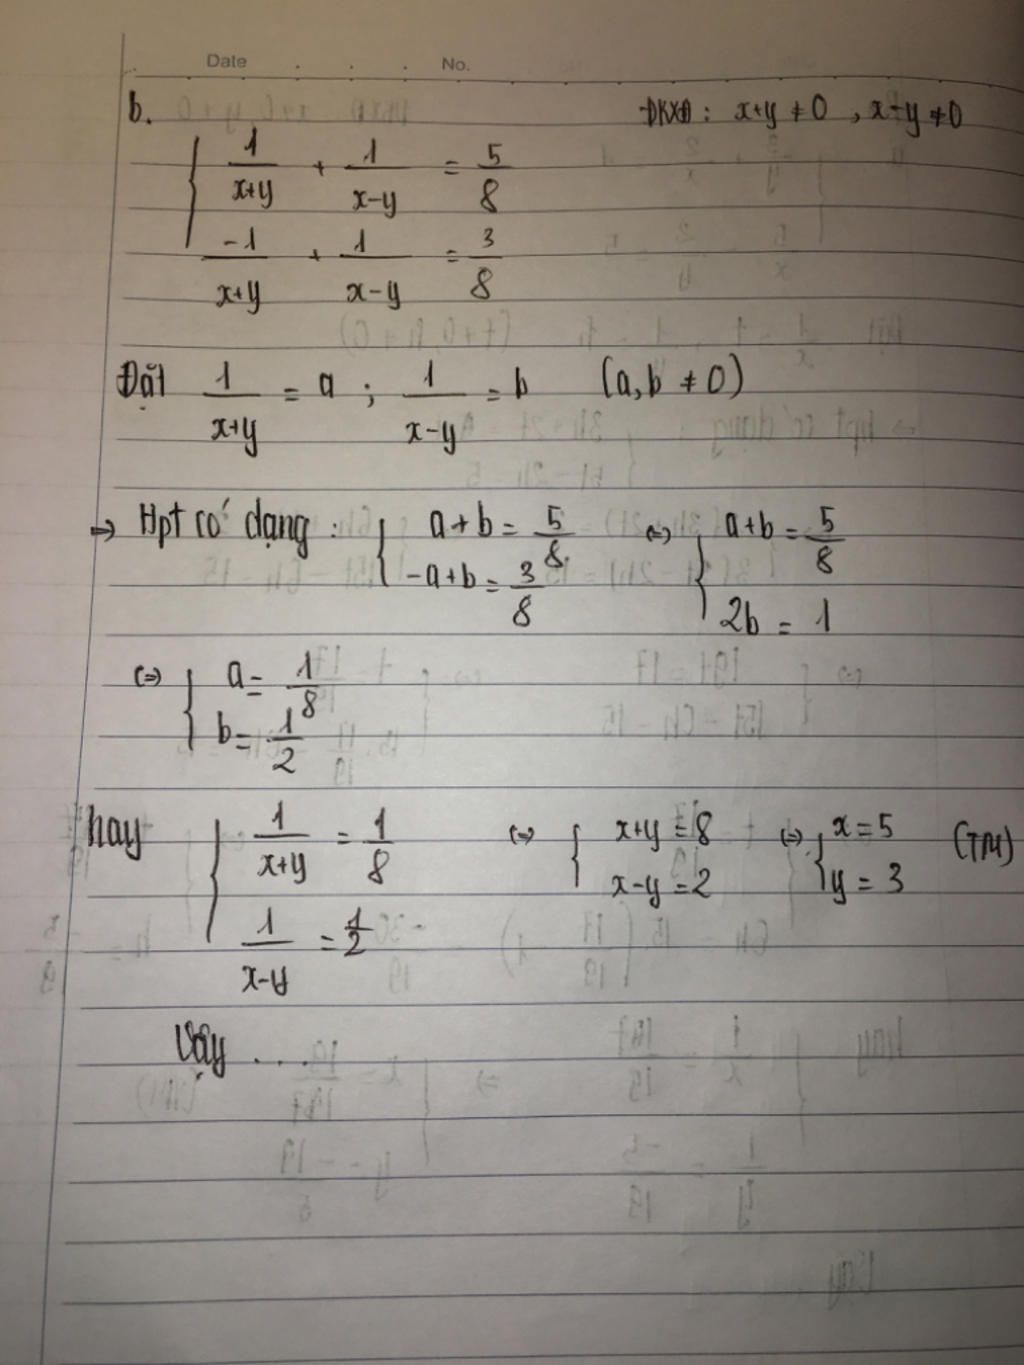 Date . . . No.
b. ĐKXĐ: x+y ≠ 0, x-y ≠ 0
{ 1/(x+y) + 1/(x-y) = 5/8
-1/(x+y) + 1/(x-y) = 3/8
Đặt 1/(x+y) = a ; 1/(x-y) = b (a,b ≠ 0)
=> Hpt có dạng: { a+b = 5/8 <=> { a+b = 5/8
-a+b = 3/8 2b = 1
<=> { a = 1/8
b = 1/2
hay { 1/(x+y) = 1/8 <=> { x+y = 8 <=> { x = 5 (TM)
1/(x-y) = 1/2 x-y = 2 y = 3
Vậy ....